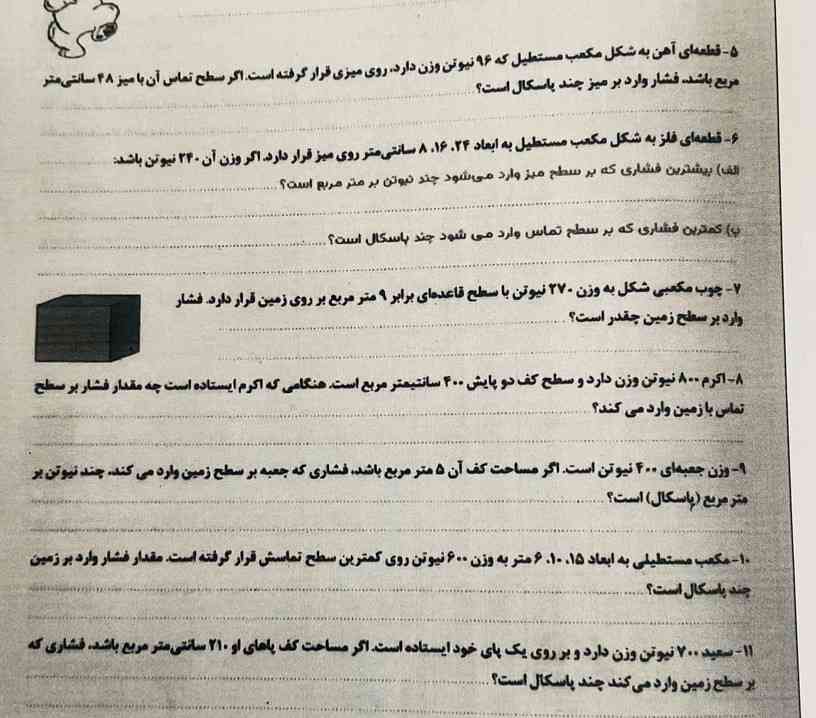 ۵- قطعه‌ای آهن به شکل مکعب مستطیل که ۹۶ نیوتن وزن دارد، روی میزی قرار گرفته است. اگر سطح تماس آن با میز ۴۸ سانتی‌متر
مربع باشد، فشار وارد بر میز چند پاسکال است؟
۶- قطعه‌ای فلز به شکل مکعب مستطیل به ابعاد ۲۴، ۱۶، ۸ سانتی‌متر روی میز قرار دارد. اگر وزن آن ۲۴۰ نیوتن باشد:
الف) بیشترین فشاری که بر سطح میز وارد می‌شود چند نیوتن بر متر مربع است؟
ب) کمترین فشاری که بر سطح تماس وارد می شود چند پاسکال است؟
۷- چوب مکعبی شکل به وزن ۲۷۰ نیوتن با سطح قاعده‌ای برابر ۹ متر مربع بر روی زمین قرار دارد. فشار
وارد بر سطح زمین چقدر است؟
۸- اکرم ۸۰۰ نیوتن وزن دارد و سطح کف دو پایش ۴۰۰ سانتیمتر مربع است. هنگامی که اکرم ایستاده است چه مقدار فشار بر سطح
تماس با زمین وارد می کند؟
۹- وزن جعبه‌ای ۴۰۰ نیوتن است. اگر مساحت کف آن ۵ متر مربع باشد، فشاری که جعبه بر سطح زمین وارد می کند، چند نیوتن بر
متر مربع (پاسکال) است؟
۱۰- مکعب مستطیلی به ابعاد ۱۵، ۱۰، ۶ متر به وزن ۶۰۰ نیوتن روی کمترین سطح تماسش قرار گرفته است. مقدار فشار وارد بر زمین
چند پاسکال است؟
۱۱- سعید ۷۰۰ نیوتن وزن دارد و بر روی یک پای خود ایستاده است. اگر مساحت کف پاهای او ۲۱۰ سانتی‌متر مربع باشد، فشاری که
بر سطح زمین وارد می‌کند چند پاسکال است؟